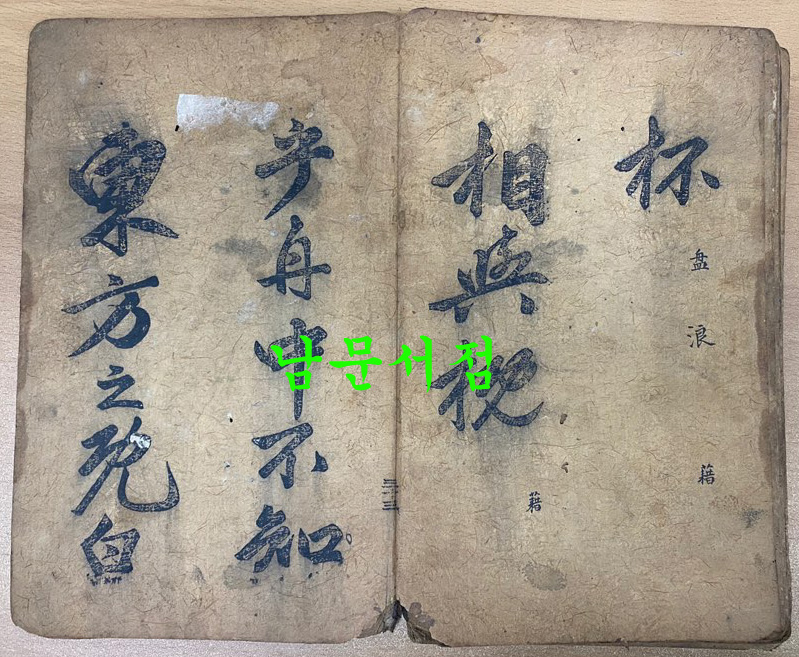 杯盘浪藉
相與枕藉
乎舟中不知
東方之既白
남문서점